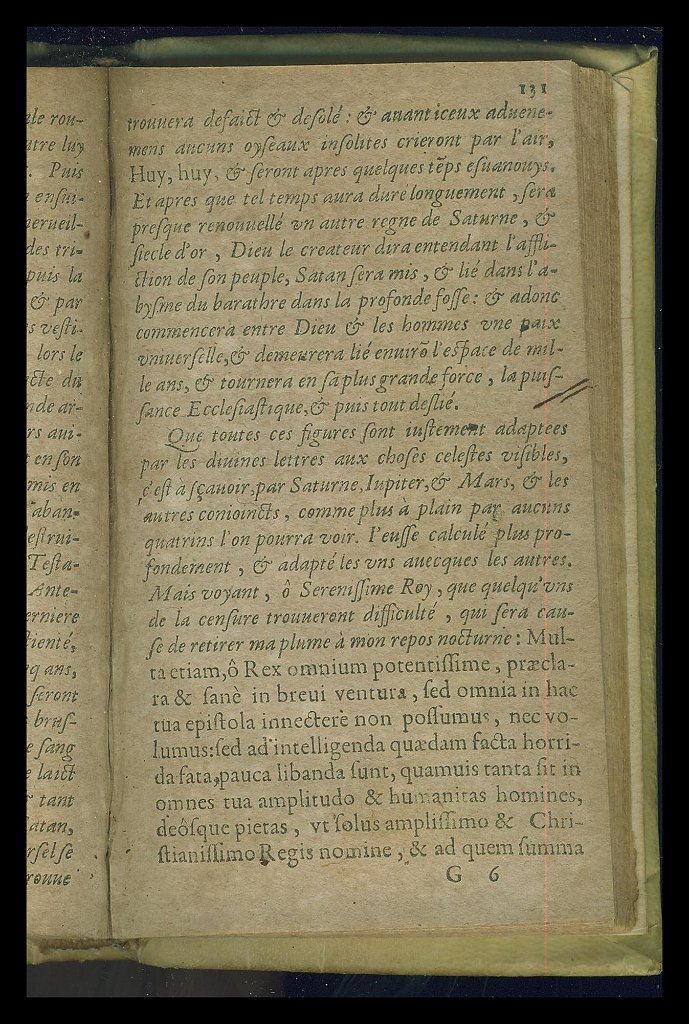 131
ale rou-
utre luy
. Puis
ensui-
nerueil-
des tri-
puis la
& par
s vesti-
lors le
ɛte du
nde ar-
rs aui-
en son
mis en
aban-
estrui-
Testa-
Ante-
erniere
ienté,
q ans,
seront
brus-
e sang
e laict
tant
atan,
rsel se
rouue
trouuera defaict & desolé : & auant iceux aduene-
mens aucuns oyseaux insolites crieront par l'air,
Huy, huy, & seront apres quelques tẽps esuanouys.
Et apres que tel temps aura duré longuement, sera
presque renouuellé vn autre regne de Saturne, &
siecle d'or, Dieu le createur dira entendant l'affli-
ction de son peuple, Satan sera mis, & lié dans l'a-
bysme du barathre dans la profonde fosse : & adonc
commencera entre Dieu & les hommes vne paix
vniuerselle, & demeurera lié enuirõ l'espace de mil-
le ans, & tournera en sa plus grande force, la puis-
sance Ecclesiastique, & puis tout deslié.
Que toutes ces figures sont iustement adaptees
par les diuines lettres aux choses celestes visibles,
c'est à sçauoir, par Saturne, Iupiter, & Mars, & les
autres conioincts, comme plus à plain par aucuns
quatrins l'on pourra voir. I'eusse calculé plus pro-
fondement, & adapté les vns auecques les autres.
Mais voyant, ô Serenissime Roy, que quelqu'vns
de la censure trouueront difficulté, qui sera cau-
se de retirer ma plume à mon repos nocturne : Mul-
ta etiam, ô Rex omnium potentissime, præcla-
ra & sanè in breui ventura, sed omnia in hac
tua epistola innectere non possumus, nec vo-
lumus: sed ad intelligenda quædam facta horri-
da fata, pauca libanda sunt, quamuis tanta sit in
omnes tua amplitudo & humanitas homines,
deósque pietas, vt solus amplissimo & Chri-
stianissimo Regis nomine, & ad quem summa
G 6